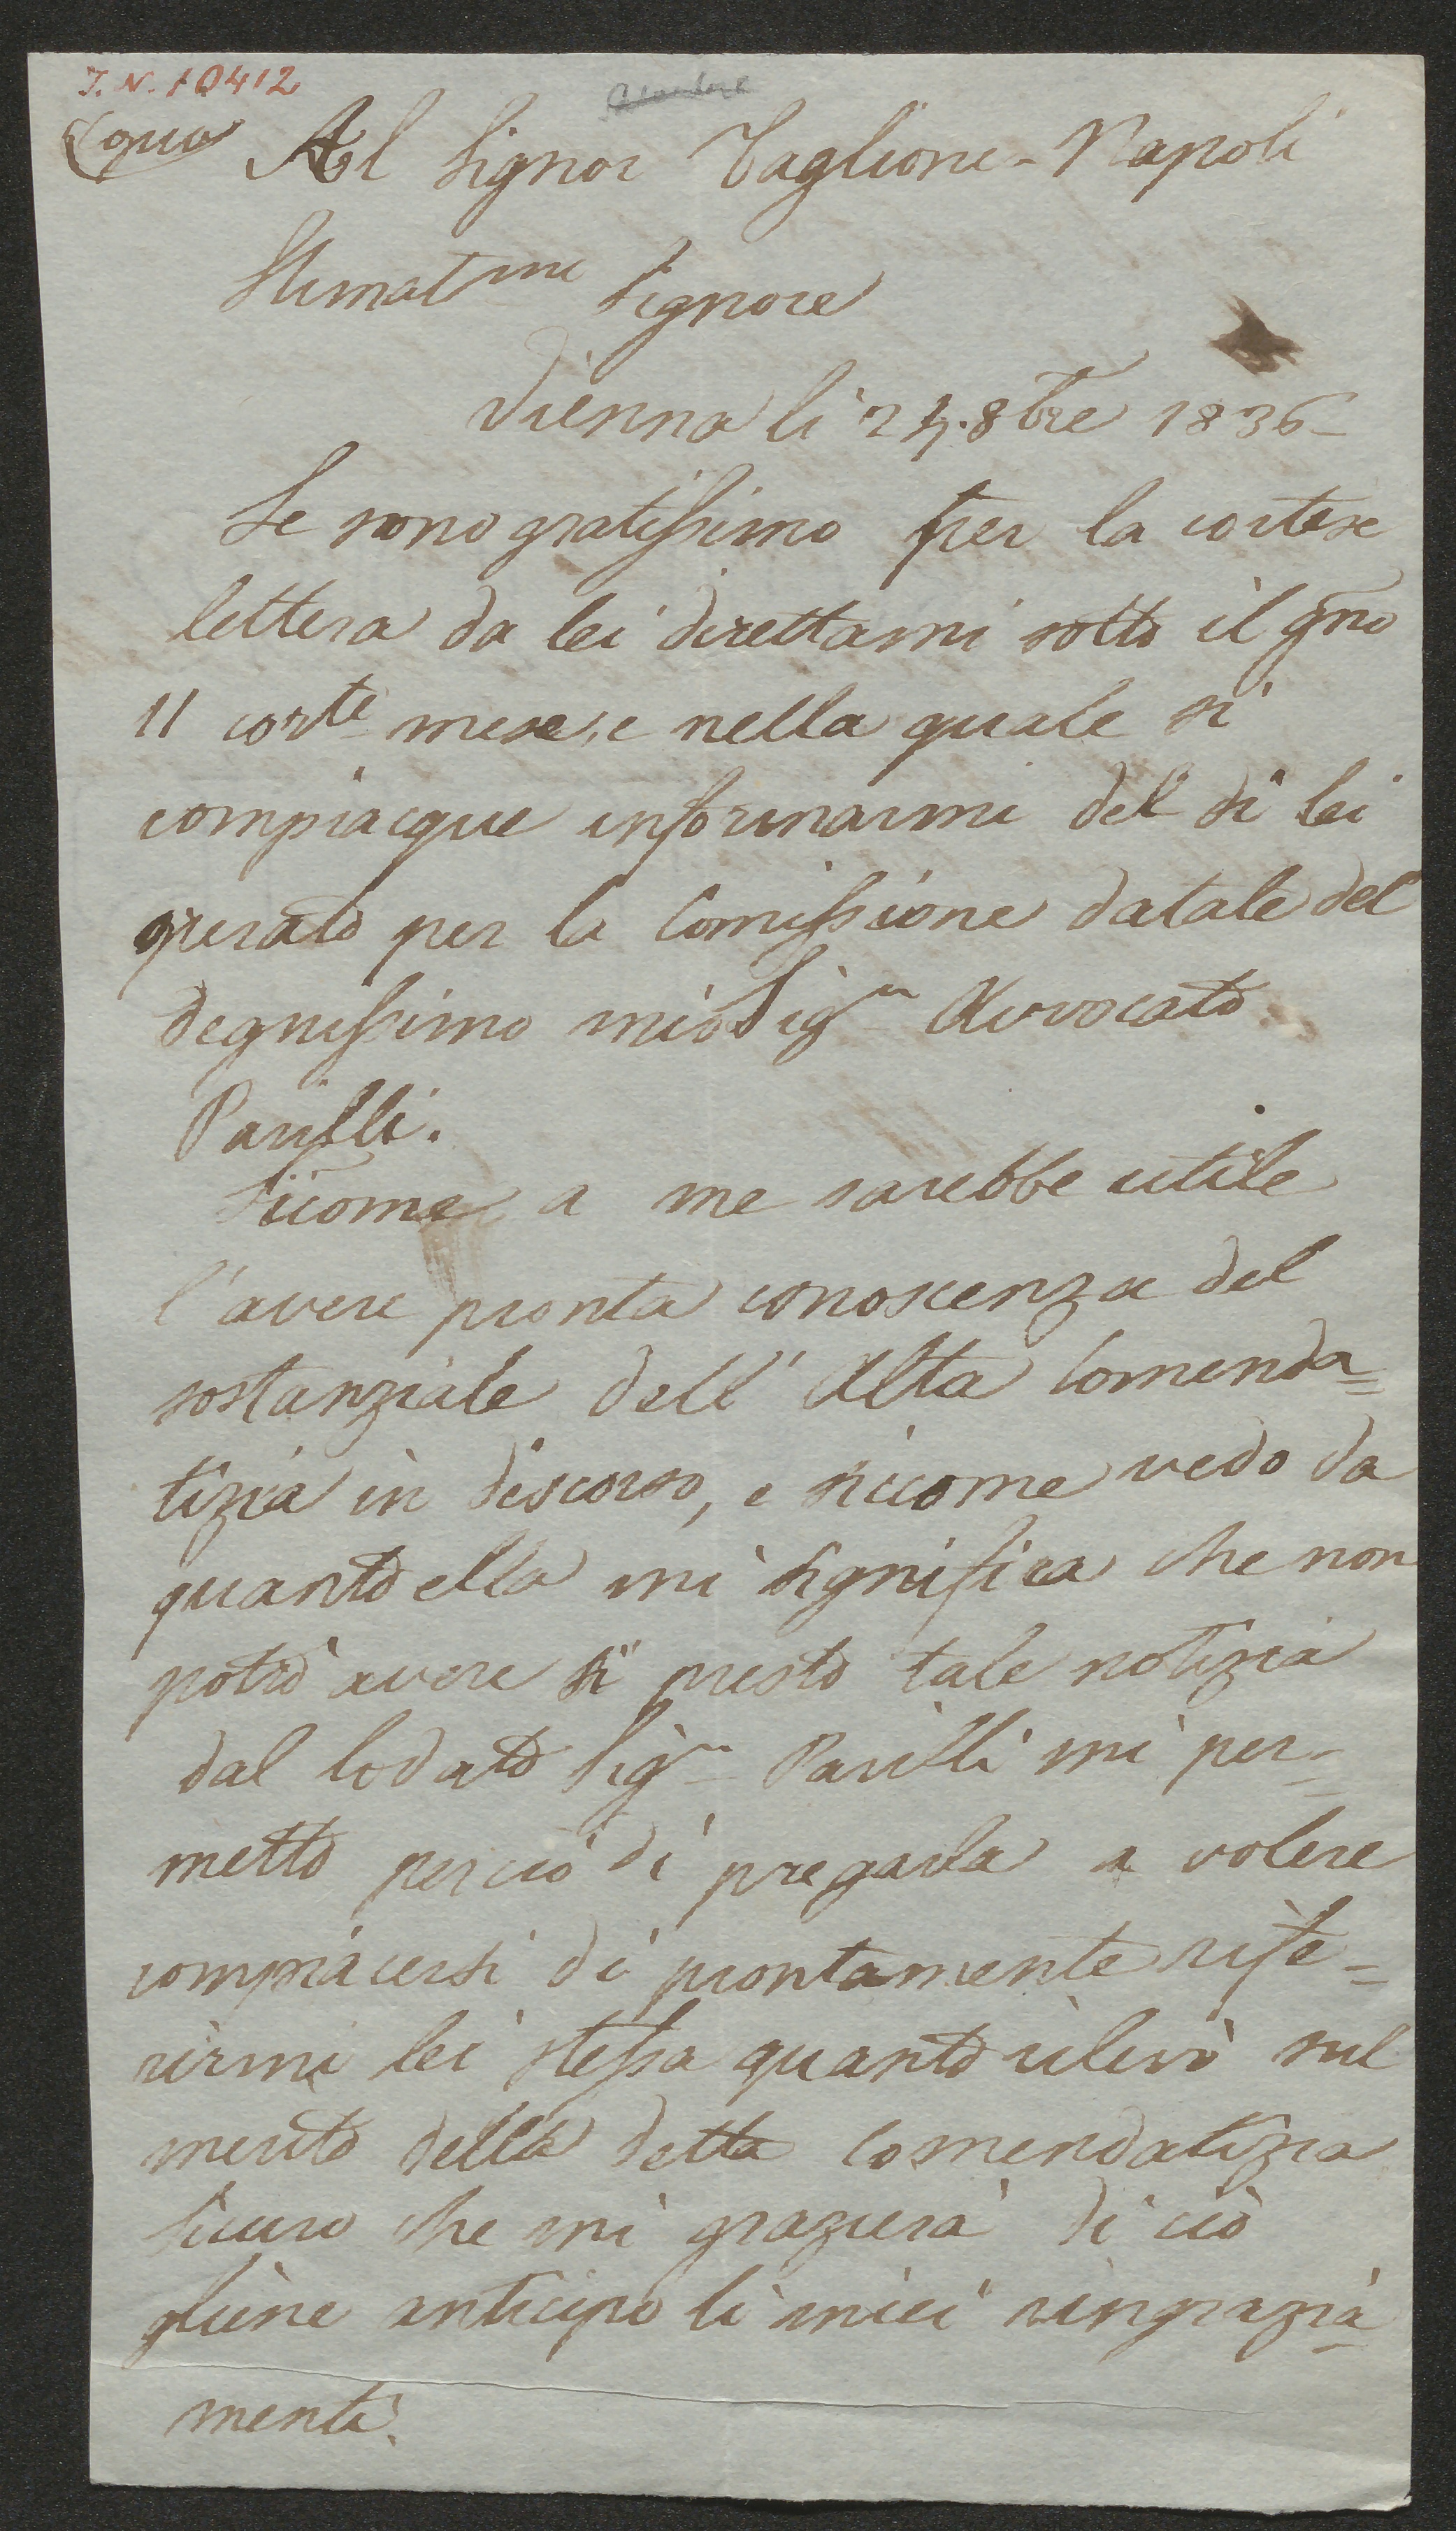 I. N. 10412
Copia Al Signor Taglioni - Napoli
Stimatmo Signore
Vienna li 24. 8bre 1836
Le sono gratissimo per la cortese
lettera da lei direttami sotto il gno
11 corte mese, e nella quale si
compiacque informarmi del di lei
operato per la Comissione datale del
degnissimo mio Sigr Avvocato
Parilli.
Sicome a me sarebbe utile
l'avere pronta conoscenza del
sostanziale dell' Alta Comenda=
tizia in discorso, e sicome vedo da
quanto ella mi significa che non
potrò avere sì presto tale notizia
dal lodato Sigr Parilli mi per=
metto perciò di pregarla a volere
compiacersi di prontamente rife=
rirmi lei stessa quanto rilevò sul
merito della detta comendatizia
Sicuro che mi grazierà di ciò
gliene anticipo li miei ringrazia=
menti.